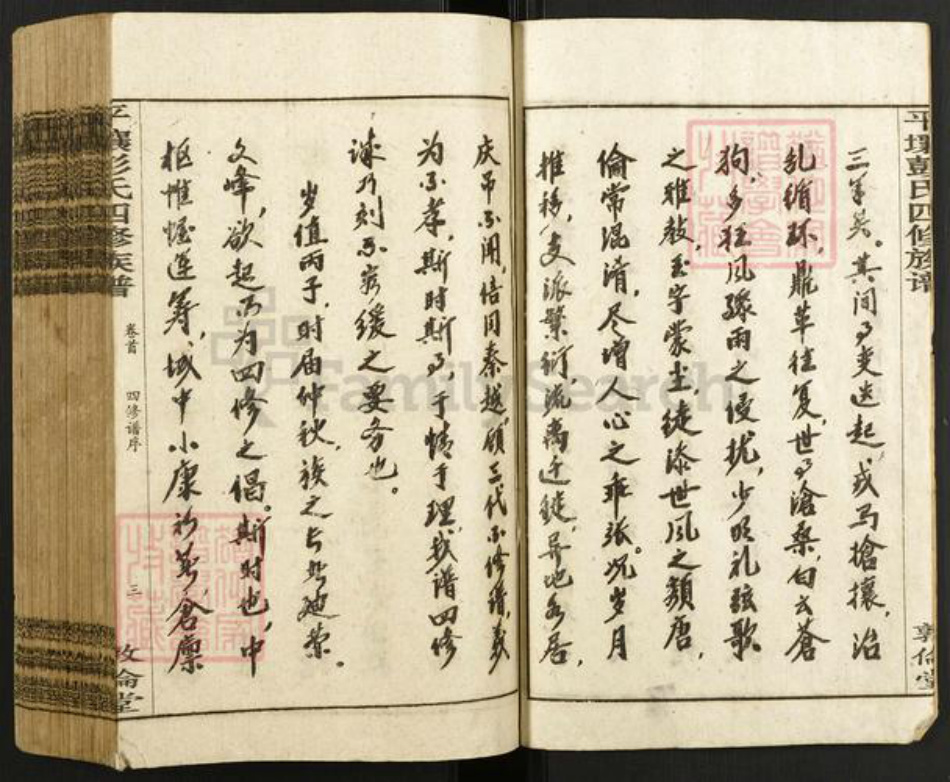 平壤彭氏四修族谱
敦伦堂
三羊矣。其间事变迭起，戎马抢攘，治
乱循环，鼎革往复，世事沧桑，白云苍
狗，多狂风骤雨之侵扰，少明礼弦歌
之雅教，玉宇蒙尘，徒添世风之颓唐，
伦常混淆，尽增人心之乖张。况岁月
推移，支派繁衍，流离迁徙，异地而居，
庆吊不闻，信同秦越，顾三代不修谱，义
为不孝，斯时斯事，于情于理，我谱四修
诚乃刻不容缓之要务也。
岁值丙子，时届仲秋，族之长
文峰，欲起而为四修之倡。斯时也，中
枢帷幄运筹，域中小康初基，仓廪
平壤彭氏四修族谱
卷首
四修谱序
三
敦伦堂
FamilySearch